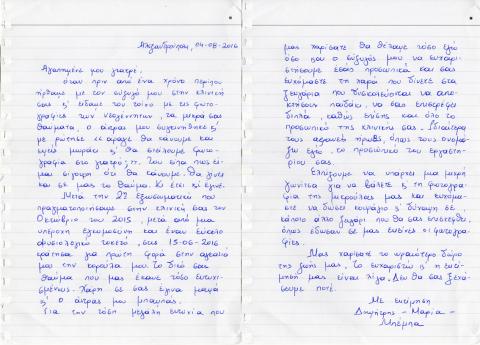 Αλεξανδρούπολη, 04-08-2016
Αγαπημένε μου γιατρέ,
όταν πριν από ένα χρόνο περίπου
ήρθαμε με τον σύζυγό μου στην κλινική
σας κ' είδαμε τον τοίχο με τις φωτο-
γραφίες των νεογέννητων, τα μικρά σας
θαύματα, ο άντρας μου συγκινήθηκε κ'
με ρώτησε << άραγε θα κάνουμε και
εμείς μωράκι κ' θα στείλουμε φωτο-
γραφία στο γιατρό; >>. Του είπα πως εί-
μαι σίγουρη ότι θα κάνουμε. Θα γίνει
και σε μας το θαύμα. Κι έτσι κι έγινε.
Μετά την 2η εξωσωματική που
πραγματοποιήσαμε στην κλινική σας τον
Οκτώβριο του 2015, μετά από μια
υπέροχη εγκυμοσύνη και έναν εύκολο
φυσιολογικό τοκετό, στις 15-06-2016
κράτησα για πρώτη φορά στην αγκαλιά
μου την κορούλα μου. Το δικό σας
θαύμα που μας έκανε τόσο ευτυχι-
σμένους. Χάρη σε σας έγινα μαμά
κ' ο άντρας μου μπαμπάς.
Για την τόση μεγάλη ευτυχία που
μας χαρίσατε θα θέλαμε τόσο εγώ
όσο και ο σύζυγός μου να ευχαρι-
στήσουμε εσάς προσωπικά και σας
ευχόμαστε τη χαρά που δίνετε στα
ζευγάρια που δυσκολεύονται να απο-
κτήσουν παιδάκι, να σας επιστρέφει
διπλά, καθώς επίσης και όλο το
προσωπικό της κλινικής σας. Ιδιαίτερα
τους αφανείς ήρωες, όπως τους ονομά-
ζω εγώ, το προσωπικό του εργαστη-
ρίου σας.
Ελπίζουμε να υπάρχει μια μικρή
γωνίτσα για να βάλετε κ' τη φωτογρα-
φία της μικρούλας μας και ευχόμα-
στε να δώσει κουράγιο κ' δύναμη σε
κάποιο άλλο ζευγάρι που θα σας επισκεφθεί,
όπως έδωσαν σε μας εκείνες οι φωτογρα-
φίες.
Μας χαρίσατε το ωραιότερο δώρο
της ζωής μας. Το ευχαριστώ κ' η ευτί-
μησή μας είναι λίγα. Δεν θα σας ξεχά-
σουμε ποτέ.
Με εκτίμηση
Δημήτρης - Μαρία -
Μπέμπα